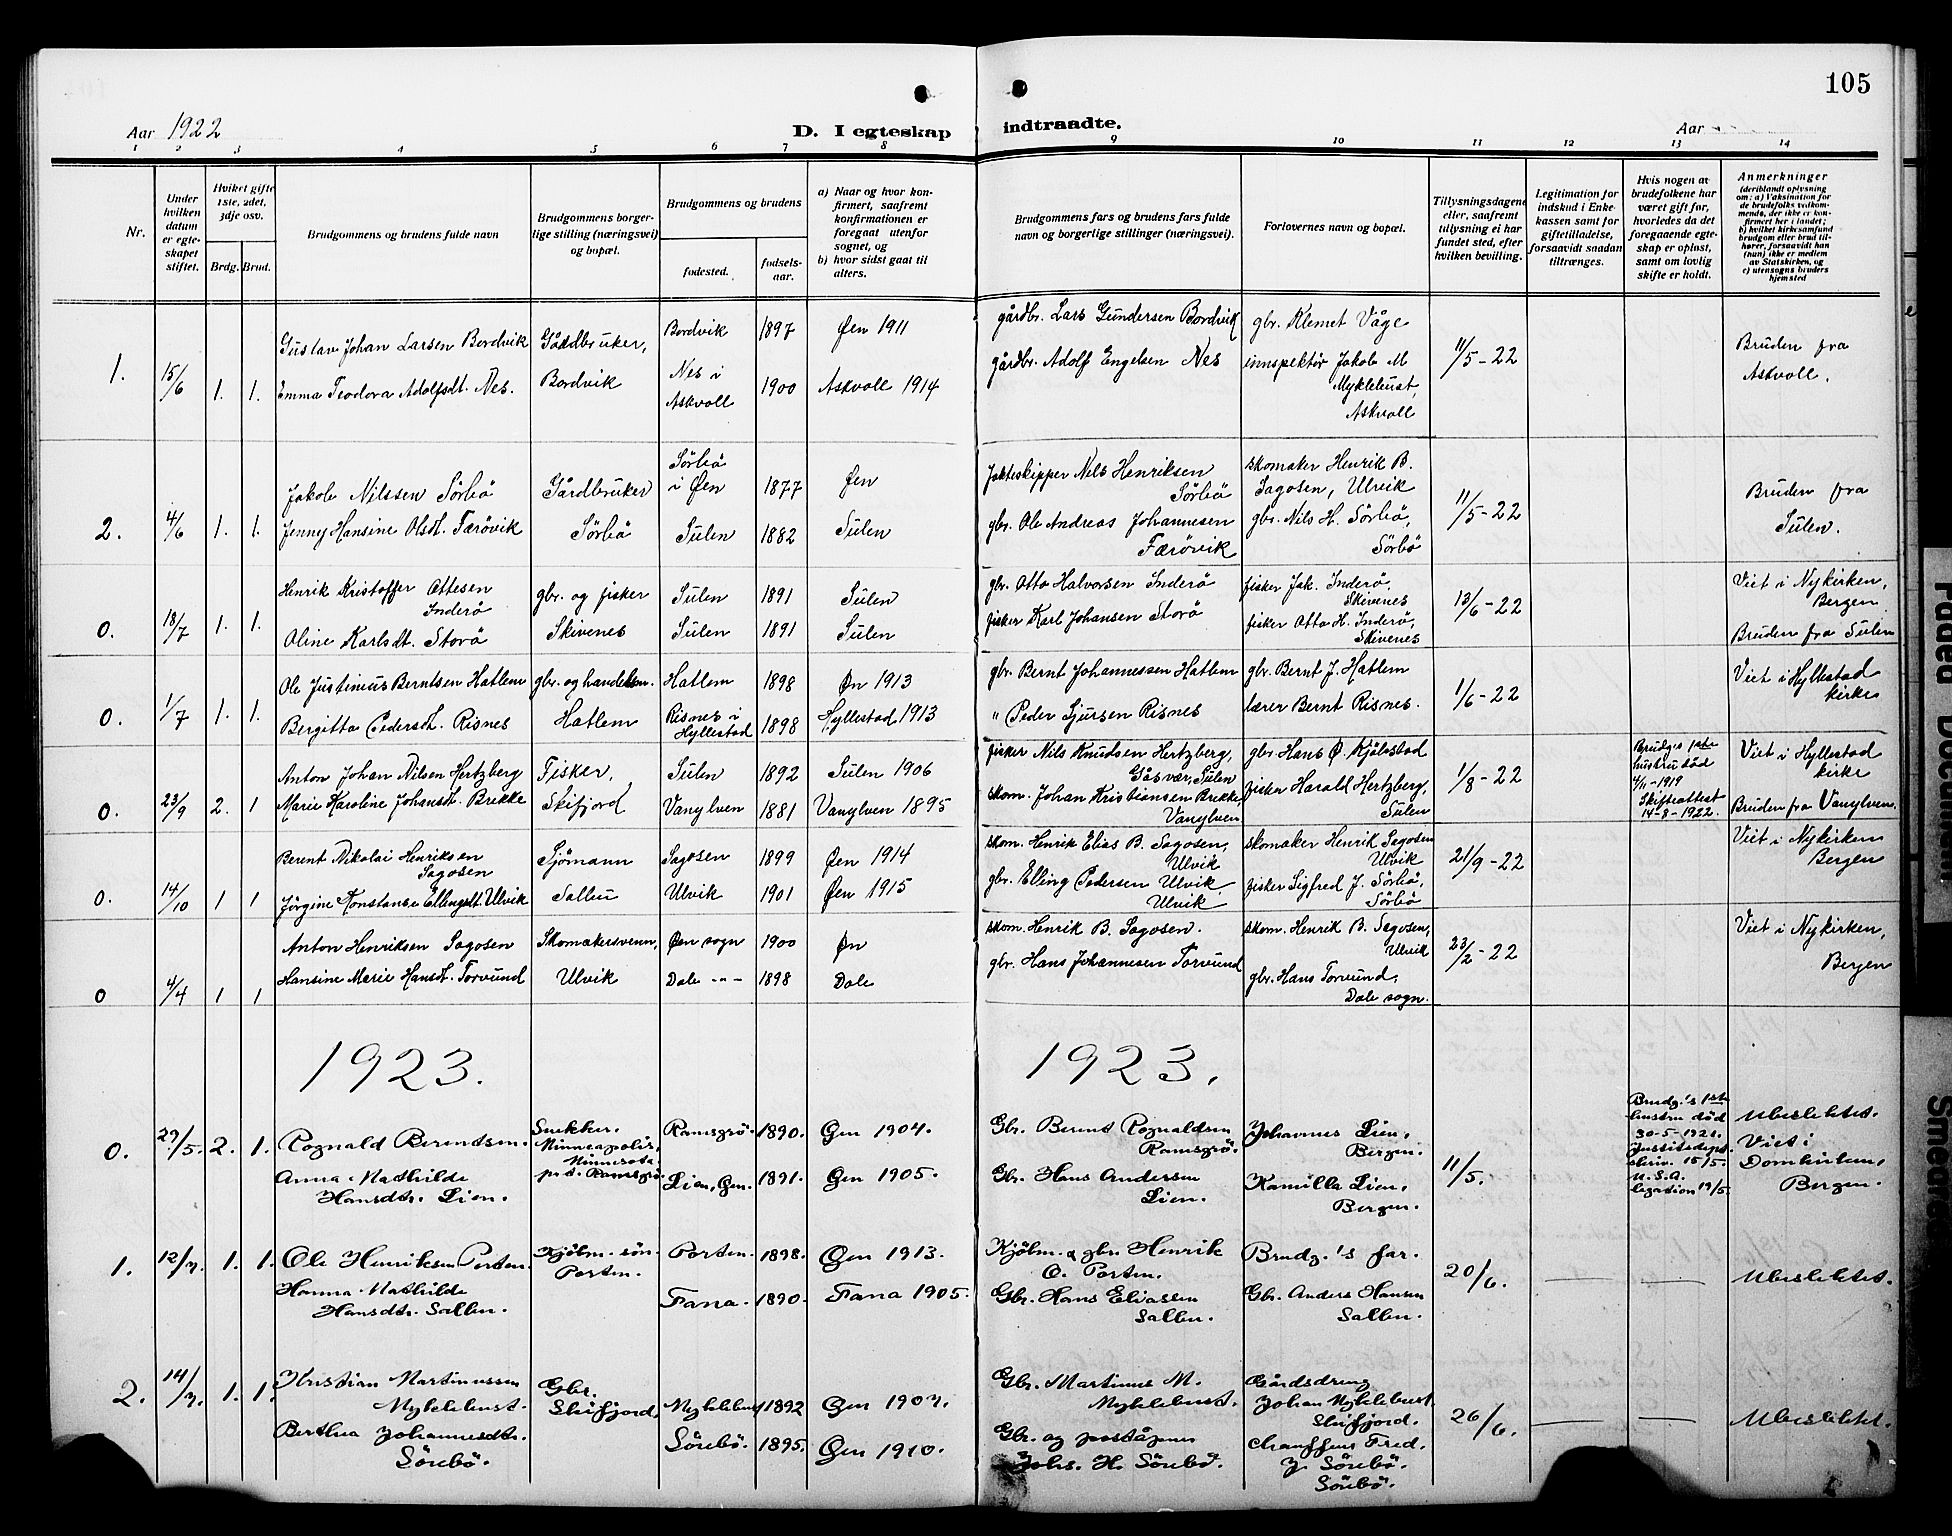 105
Aar 1922
D. I egteskap indtraadte.
Aar
1 2 3 4 5 6 7 8 9 10 11 12 13 14
Nr.
Under hvilken datum er egteskapet stiftet.
Hvilket gifte 1ste, 2det, 3dje osv.
Brdg. Brud.
Brudgommens og brudens fulde navn
Brudgommens borgerlige stilling (næringsvei) og bopæl.
Brudgommens og brudens
fødested.
fødselsaar.
a) Naar og hvor konfirmert, saafremt konfirmationen er foregaat utenfor sognet, og
b) hvor sidst gaat til alters.
Brudgommens fars og brudens fars fulde navn og borgerlige stillinger (næringsvei).
Forlovernes navn og bopæl.
Tillysningsdagene eller, saafremt tillysning ei har fundet sted, efter hvilken bevilling.
Legitimation for indskud i Enkekassen samt for giftetilladelse, forsaavidt saadan tiltrænges.
Hvis nogen av brudefolkene har været gift før, hvorledes da det foregaaende egteskap er opløst, samt om lovlig skifte er holdt.
Anmerkninger
(deriblandt oplysning om: a) Vaksination for de brudefolks vedkommende, der ikke er konfirmert her i landet; b) hvilket kirkesamfund brudgom eller brud tilhører, forsaavidt han (hun) ikke er medlem av Statskirken, og c) utensogns bruders hjemsted
1. 15/6 1. 1.
Gustav Johan Larsen Bordvik
Emma Teodora Adolfsdt. Nes.
Gårdbruker,
Bordvik
Bordvik 1897 Øen 1911
Nes i Askvoll 1900 Askvoll 1914
gårdbr. Lars Gundersen Bordvik
gårdbr. Adolf Engelsen Nes
gbr. Klemet Våge
innspektør Jakob M
Myklebust,
Askvoll
11/5-22
Bruden fra
Askvoll.
2. 4/6 1. 1.
Jakob Nilssen Sörbö
Jenny Hansine Olsdt. Færövik
Gårdbruker
Sörbö
Sörbö i Øen 1877 Øen
Sulen 1882 Sulen
Jakteskipper Nils Henriksen
Sörbö
gbr. Ole Andreas Johannesen
Færövik
skomaker Henrik B.
Sagosen, Ulvik
gbr. Nils H. Sörbö,
Sörbö
11/5-22
Bruden fra
Sulen.
0. 18/7 1. 1.
Henrik Kristoffer Ottesen
Inderö
Oline Karlsdt. Storö
gbr. og fisker
Skivenes
Sulen 1891 Sulen
Sulen 1891 Sulen
gbr. Otto Halvorsen Inderö
fisker Karl Johansen Storö
fisker Jak. Inderö,
Skivenes
fisker Otto H. Inderö,
Skivenes
13/6-22
Viet i Nykirken,
Bergen
Bruden fra Sulen
0. 1/7 1. 1.
Ole Justinius Berntsen Hatlem
Bergitta Pedersdt. Risnes
gbr. og handelsm.
Hatlem
Hatlem 1898 Øn 1913
Risnes i Hyllestad 1898 Hyllestad 1913
gbr. Bernt Johannessen Hatlem
" Peder Sjursen Risnes
gbr. Bernt J. Hatlem
lærer Bernt Risnes.
1/6-22
Viet i Hyllestad
kirke
0. 23/9 2. 1
Anton Johan Nilsen Hertzberg
Marie Karoline Johansdt. Brekke
Fisker,
Skifjord
Sulen 1892 Sulen 1906
Vanylven 1881 Vanylven 1895
fisker Nils Knudsen Hertzberg,
Gåsvær, Sulen
skom. Johan Kristiansen Brekke
Vanylven
gbr. Hans Ø. Kjålstad
fisker Harald Hertzberg,
Sulen
1/8-22
Brudg.s 1ste
hustru död
4/11-1919
Skifteattest
14-8-1922.
Viet i Hyllestad
kirke
Bruden fra Vanylven.
0. 14/10 1 1
Berent Nikolai Henriksen
Sagosen
Jörgine Konstanse Ellengsdt. Ulvik
Sjömann
Sallen
Sagosen 1899 Øen 1914
Ulvik 1901 Øen 1915
skom. Henrik Elias B. Sagosen,
Ulvik
gbr. Elling Pedersen Ulvik
Ulvik
skomaker Henrik Sagosen
Ulvik
fisker Sigfred J. Sörbö,
Sörbö
21/9-22
Viet i Nykirken
Bergen
0 4/4 1 1
Anton Henriksen Sagosen
Hansine Marie Hansdt. Torvund
Skomakersvenn,
Ulvik
Øen sogn 1900 Øn
Dale -"- 1898 Dale
skom. Henrik B. Sagosen.
gbr. Hans Johannesen Torvund
skom. Henrik B. Sagosen,
Ulvik
gbr. Hans Torvund,
Dale sogn.
23/2-22
Viet i Nykirken,
Bergen
1923. 1923.
0. 29/5. 2. 1.
Rognald Berentsen.
Anna Mathilde
Hansdtr. Lien.
Snekker.
Minneapolis,
Minnesota
p.t. Ramsgrö.
Ramsgrö. 1890. Øen 1904.
Lien, Øen. 1891. Øen 1905.
Gbr. Berent Rognaldsen
Ramsgrö.
Gbr. Hans Andersen
Lien.
Johannes Lien,
Bergen.
Kamilla Lien,
Bergen.
11/5.
Brudg.'s 1ste
hustru död
30-5-1921.
Justitsdept.
skriv. 15/5.
U.S.A.
legation 19/5.
Ubeslektet.
Viet i
Domkirken,
Bergen.
1. 12/7. 1. 1.
Ole Henriksen Porten.
Hanna Mathilde
Hansdtr. Sallen.
Kjöbm.-sön.
Porten.
Porten. 1898. Øen 1913.
Fana. 1890. Fana 1905.
Kjöbm. & gbr. Henrik
O. Porten.
Gbr. Hans Eliassen
Sallen.
Brudg.'s far.
Gbr. Anders Hansen
Sallen.
20/6.
Ubeslektet.
2. 14/7. 1. 1.
Kristian Martinussen
Myklebust.
Berthea Johannesdtr.
Sörebö.
Gbr.
Skifjord.
Myklebust 1892 Øen 1907.
Sörebö. 1895. Øen 1910.
Gbr. Martinus M.
Myklebust.
Gbr. og poståpner
Johs. H. Sörebö.
Gårdsdreng
Johan Myklebust.
Skifjord.
Chauffeur Fred.
J. Sörebö.
Sörebö.
26/6.
Ubeslektet.